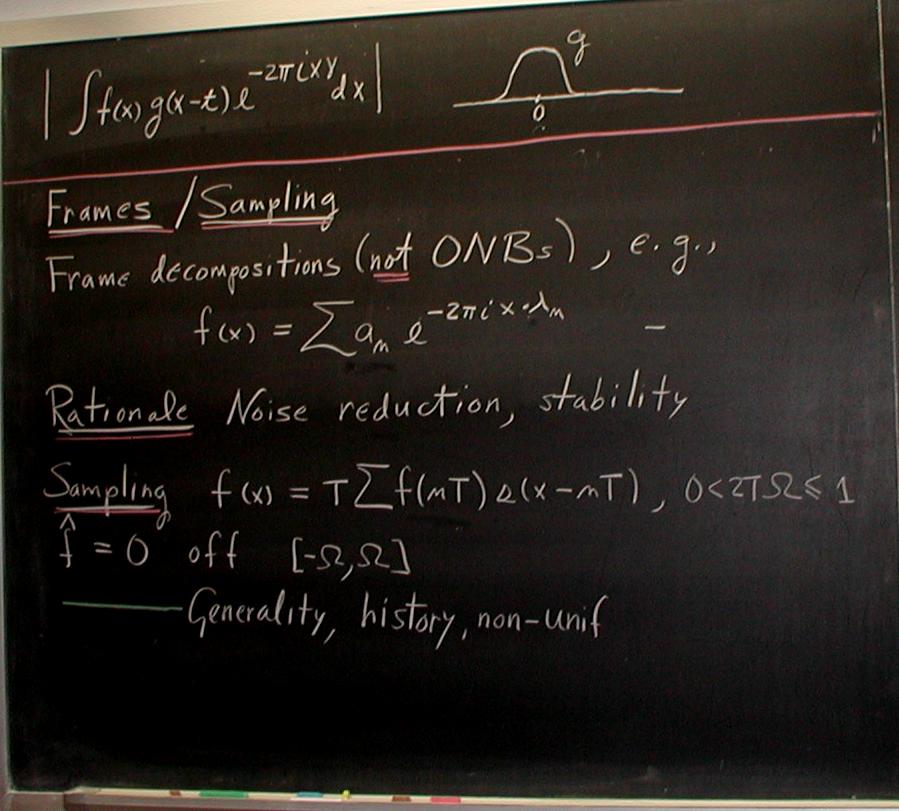 |∫f(x)g(x-t)e^{-2πixγ}dx| g
0
Frames / Sampling
Frame decompositions (not ONBs), e.g.,
f(x) = ∑a_n e^{-2πix·λ_n} -
Rationale Noise reduction, stability
Sampling f(x) = T∑f(nT)s(x-nT), 0<2TΩ≤1
f̂ = 0 off [-Ω,Ω]
Generality, history, non-unif